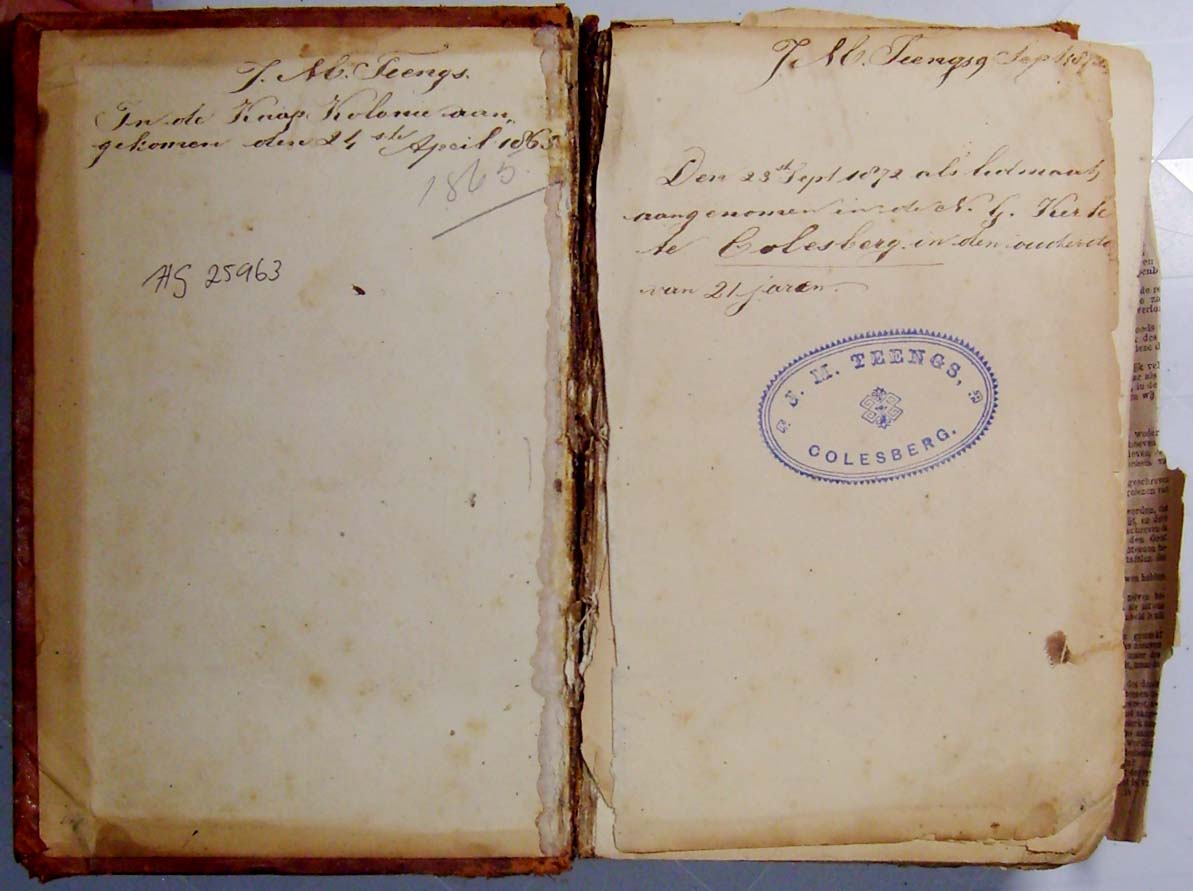 J. M. Teengs.
In de Kaap Kolonie aan,
gekomen den 24ste April 1865
1865.
AG 25963
J. M. Teengs 9 Sept 1872
Den 23st Sept 1872 als lidmaat
aangenomen in de N. G. Kerk
te Colesberg in den ouderdo
van 21 jaren.
J. M. TEENGS,
COLESBERG.